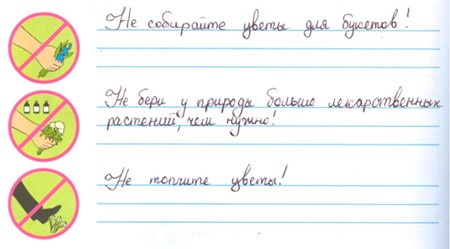 Не собирайте цветы для букетов!
Не бери у природы больше лекарственных
растений, чем нужно!
Не топчите цветы!